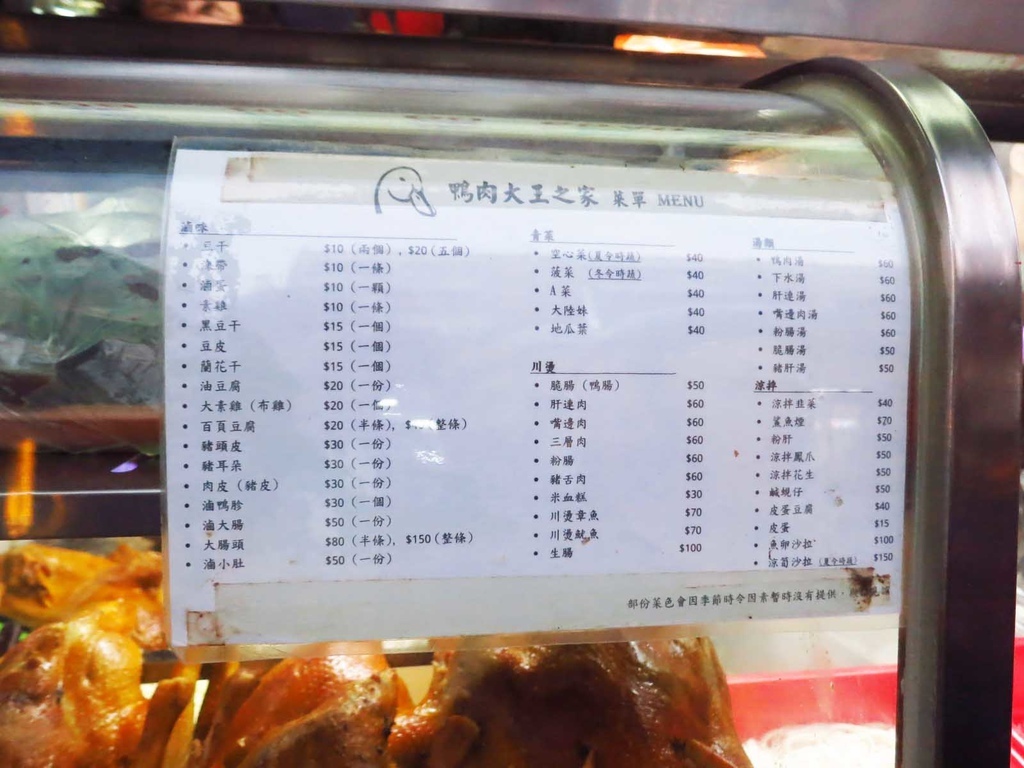 鴨肉大王之家 菜單 MENU
滷味
豆干 $10 (兩個), $20 (五個)
海帶 $10 (一條)
滷蛋 $10 (一顆)
素雞 $10 (一條)
黑豆干 $15 (一個)
豆皮 $15 (一個)
蘭花干 $15 (一個)
油豆腐 $20 (一份)
大素雞 (布雞) $20 (一個)
百頁豆腐 $20 (半條), (整條)
豬頭皮 $30 (一份)
豬耳朵 $30 (一份)
肉皮 (豬皮) $30 (一份)
滷鴨胗 $30 (一個)
滷大腸 $50 (一份)
大腸頭 $80 (半條), $150 (整條)
滷小肚 $50 (一份)
青菜
空心菜 (夏令時蔬) $40
菠菜 (冬令時蔬) $40
A菜 $40
大陸妹 $40
地瓜葉 $40
川燙
脆腸 (鴨腸) $50
肝連肉 $60
嘴邊肉 $60
三層肉 $60
粉腸 $60
豬舌肉 $60
米血糕 $30
川燙章魚 $70
川燙魷魚 $70
生腸 $100
湯類
鴨肉湯 $60
下水湯 $60
肝連湯 $60
嘴邊肉湯 $60
粉腸湯 $60
脆腸湯 $50
豬肝湯 $50
涼拌
涼拌韭菜 $40
鯊魚煙 $70
粉肝 $50
涼拌鳳爪 $50
涼拌花生 $50
鹹蜆仔 $50
皮蛋豆腐 $40
皮蛋 $15
魚卵沙拉 $100
涼筍沙拉 (夏令時蔬) $150
部份菜色會因季節時令因素暫時沒有提供,